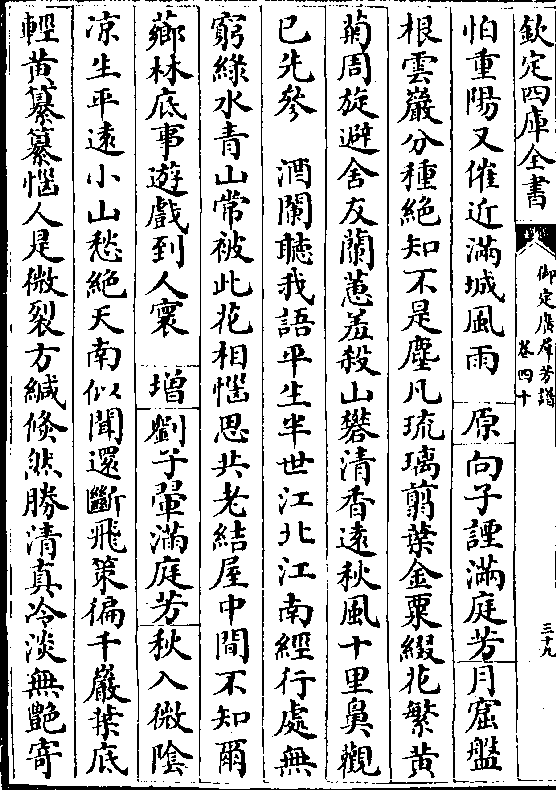 欽定四庫全書
御定廣羣芳譜
卷四十
三十九
怕重陽又催近滿城風雨 原 向子諲滿庭芳 月窟盤
根雲巖分種絶知不是塵凡琉璃翦葉金粟綴花繁黄
菊周旋避舍友蘭蕙羞殺山礬清香逺秋風十里鼻觀
已先參 酒闌聽我語平生半世江北江南經行處無
窮緑水青山常被此花相惱思共老結屋中間不知爾
薌林底事遊戲到人寰 増 劉子翬滿庭芳 秋入微陰
凉生平逺小山愁絶天南似聞還斷飛策徧千巖葉底
輕黄纂纂惱人是微裂方緘倏然勝清真冷淡無艶寄